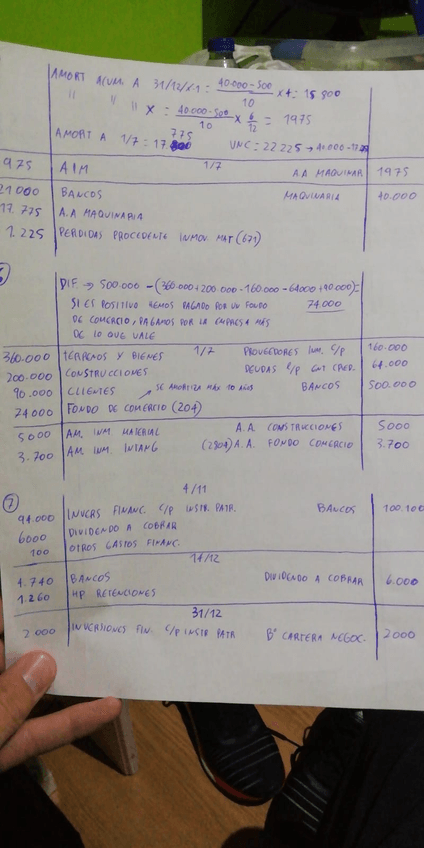 AMORT ACUM. A 31/12/X-1 = 40.000-500 / 10 x 4 = 15.800
" " " X = 40.000-500 / 10 x 6/12 = 1975
AMORT A 1/7 = 17.775 VNC = 22.225 →
975 AIM 1/7 A.A MAQUINAR 1975
21000 BANCOS MAQUINARIA 40.000
17.775 A.A MAQUINARIA
1.225 PERDIDAS PROCEDENTE INMOV. MAT (671)
DIF. → 500.000 - (360.000+200.000-160.000-64000+90.000)=
SI ES POSITIVO HEMOS PAGADO POR UN FONDO 74.000
DE COMERCIO, PAGAMOS POR LA EMPRESA MÁS
DE LO QUE VALE
360.000 TERRENOS Y BIENES 1/7 PROVEEDORES INM. C/P 160.000
200.000 CONSTRUCCIONES DEUDAS L/P ENT CRED. 64.000
90.000 CLIENTES → SE AMORTIZA MÁX 10 AÑOS BANCOS 500.000
74000 FONDO DE COMERCIO (204)
5000 AM. INM MATERIAL A.A. CONSTRUCCIONES 5000
3.700 AM. INM. INTANG (2804) A.A. FONDO COMERCIO 3.700
7
4/11
94.000 INVERS FINANC. C/P INSTR. PATR. BANCOS 100.100
6000 DIVIDENDO A COBRAR
100 OTROS GASTOS FINANC.
14/12
4.740 BANCOS DIVIDENDO A COBRAR 6.000
1.260 HP RETENCIONES
31/12
2.000 INVERSIONES FIN. C/P INSTR PATR Bº CARTERA NEGOC. 2000